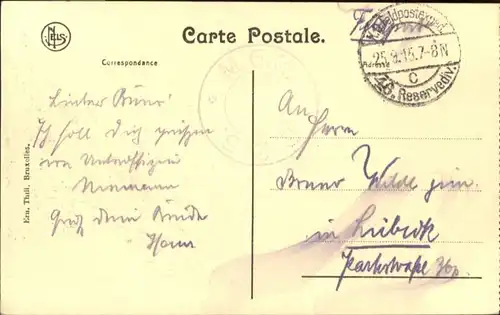 NELS
Carte Postale.
Feldpost
K.D. Feldpostexped.
25.9.15.7-8N
c
46. Reservediv.
Correspondance
Adresse
Lieber Bruno!
Ich soll Dich grüßen
von Unteroffizier
Niemann
Gruß Dein
Hans
An
Herrn
Bruno Wilde jun.
in Lübeck
Parkstraße 36
Ern. Thill, Bruxelles.